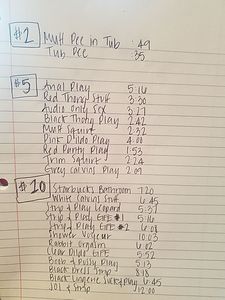 #1 Mutt Pee in Tub :49
Tub Pee :35
#5 Anal Play 5:16
Red Thong Stuff 3:30
Audio Only Sex 3:27
Black Thong Play 2:42
Mutt Squirt 2:32
Pink Dildo Play 4:00
Red Panty Play 1:53
Trim Squirt 2:24
Grey Calvins Play 2:09
#10 Starbucks Bathroom 7:20
White Calvins Stuff 6:45
Strip & Play Leopard 5:37
Strip & Play GFE #1 5:16
Strip & Play GFE #2 6:08
Shower Voyeur 10:03
Rabbit Orgasm 6:02
Clear Dildo GFE 5:52
Boob & Pussy Play 5:13
Black Dress Strip 8:18
Black Lingerie Suck & Play 6:45
JOI & Strip 12:00